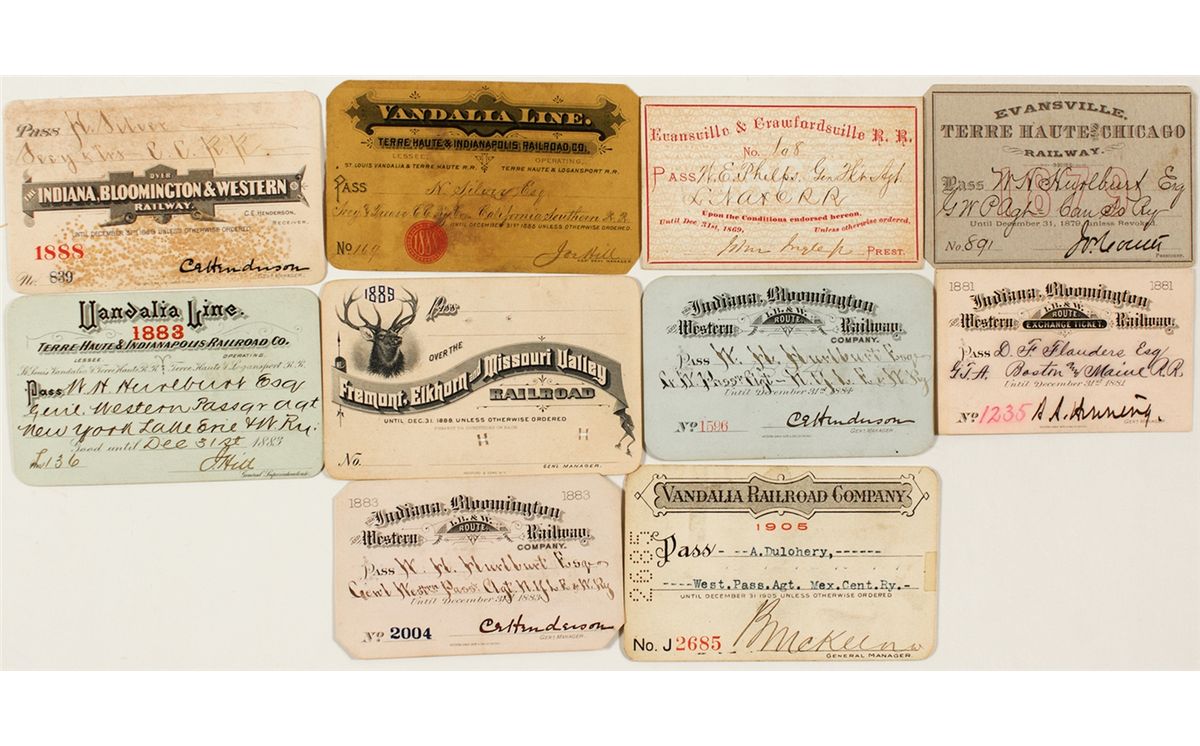 Pass N. Silver
Secy & Trs. C. C. R.R.
OVER
THE INDIANA, BLOOMINGTON & WESTERN
RAILWAY.
C.E. HENDERSON,
RECEIVER.
UNTIL DECEMBER 31ST 1888 UNLESS OTHERWISE ORDERED
1888
No. 839
C E Henderson
GEN'L MANAGER.
VANDALIA LINE.
TERRE HAUTE & INDIANAPOLIS RAILROAD CO.
LESSEE, OPERATING,
ST. LOUIS VANDALIA & TERRE HAUTE R.R. TERRE HAUTE & LOGANSPORT R.R.
PASS N. Silver Esq
California Southern R.R.
UNTIL DECEMBER 31ST 1888 UNLESS OTHERWISE ORDERED.
No 169
Jos Hill
GEN'L MANAGER
Evansville & Crawfordsville R. R.
No. 108
PASS W. E. Phelps. Gen Fht Agt
Upon the Conditions endorsed hereon.
Until Dec 31st, 1869, Unless otherwise ordered.
PREST.
EVANSVILLE,
TERRE HAUTE AND CHICAGO
RAILWAY.
1879
Pass W H Hurlburt Esq
G W P Agt Can So Ry
Until December 31, 1879 unless Revoked.
No. 891
President.
Vandalia Line.
1883
TERRE HAUTE & INDIANAPOLIS RAILROAD CO.
LESSEE OPERATING.
St. Louis Vandalia & Terre Haute R.R. Terre Haute & Logansport R.R.
Pass W. H. Hurlburt Esq
Genl Western Passgr Agt
New York Lake Erie & W Ry.
Good until Dec 31st 1883
No 136
J Hill
General Superintendent.
1889
Pass
OVER THE
Fremont, Elkhorn and Missouri Valley
RAILROAD
UNTIL DEC. 31. 1889 UNLESS OTHERWISE ORDERED
H H
No.
GEN'L MANAGER.
Indiana, Bloomington
I.B. & W.
and Western ROUTE. Railway.
COMPANY.
Pass W. H. Hurlburt Esq
G. W. Pass Agt - N.Y.L.E & W Ry
Until December 31st 1884
No 1596
C E Henderson
GEN'L MANAGER.
1881 1881
Indiana, Bloomington
I.B. & W.
and Western ROUTE Railway.
EXCHANGE TICKET.
PASS D. F. Flanders Esq
G.T.A. Boston and Maine R.R
Until December 31st 1881
No 1235
GEN'L MANAGER.
1883 1883
Indiana, Bloomington
I.B. & W.
and Western ROUTE. Railway.
COMPANY.
PASS W. H. Hurlburt Esq
Gen'l West'rn Pass' Agt. N.Y.L.E & W. Ry
Until December 31st 1883
No 2004
C E Henderson
GEN'L MANAGER.
VANDALIA RAILROAD COMPANY
1905
2685
Pass - --A.Dulohery,------
----West.Pass.Agt. Mex.Cent.Ry.-
UNTIL DECEMBER 31 1905 UNLESS OTHERWISE ORDERED
No. J 2685
GENERAL MANAGER.